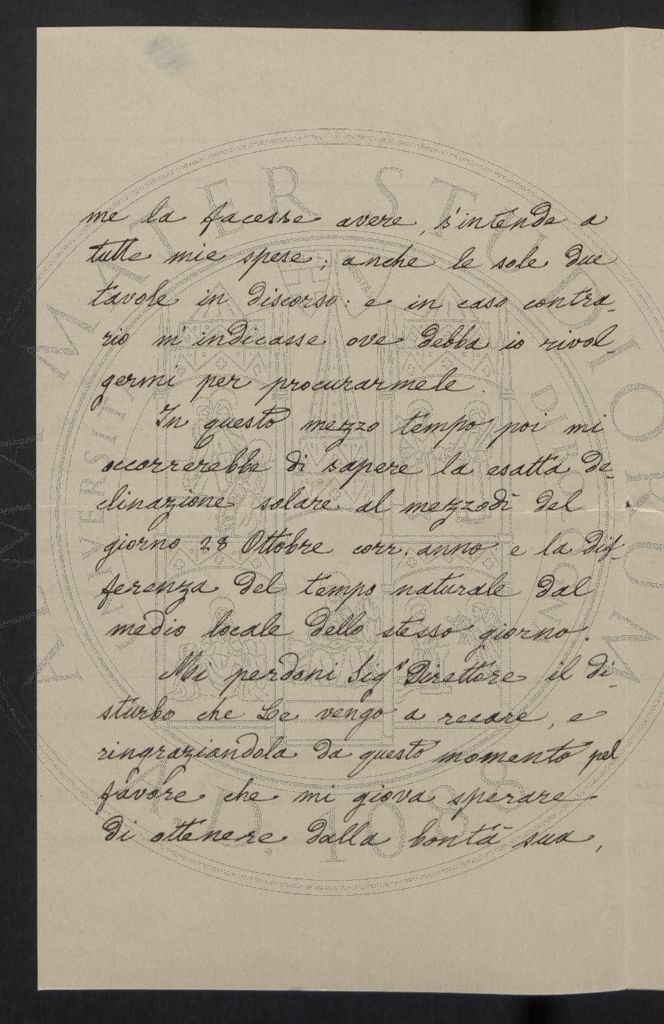 me la facesse avere, s'intende a
tutte mie spese; anche le sole due
tavole in discorso: e in caso contra-
rio m'indicasse ove debba io rivol-
germi per procurarmele.
In questo mezzo tempo poi mi
occorrerebbe di sapere la esatta de-
clinazione solare al mezzodì del
giorno 28 Ottobre corr. anno e la dif-
ferenza del tempo naturale dal
medio locale dello stesso giorno.
Mi perdoni Sigr Direttore il di-
sturbo che Le vengo a recare, e
ringraziandola da questo momento pel
favore che mi giova sperare
di ottenere dalla bontà sua,
ALMA MATER STUDIORUM
A.D. 1088